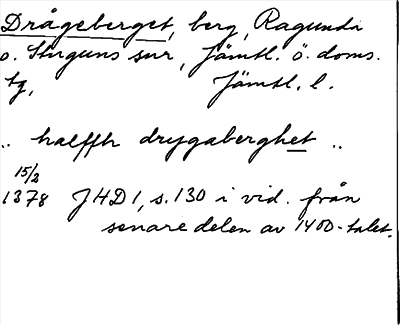 Drågeberget, berg, Ragunda
o. Stuguns snr, Jämtl. ö. doms.
tg, Jämtl. l.
.. halffh drygaberghet ..
15/2
1378 JHD 1, s. 130 i vid. från
senare delen av 1400-talet.